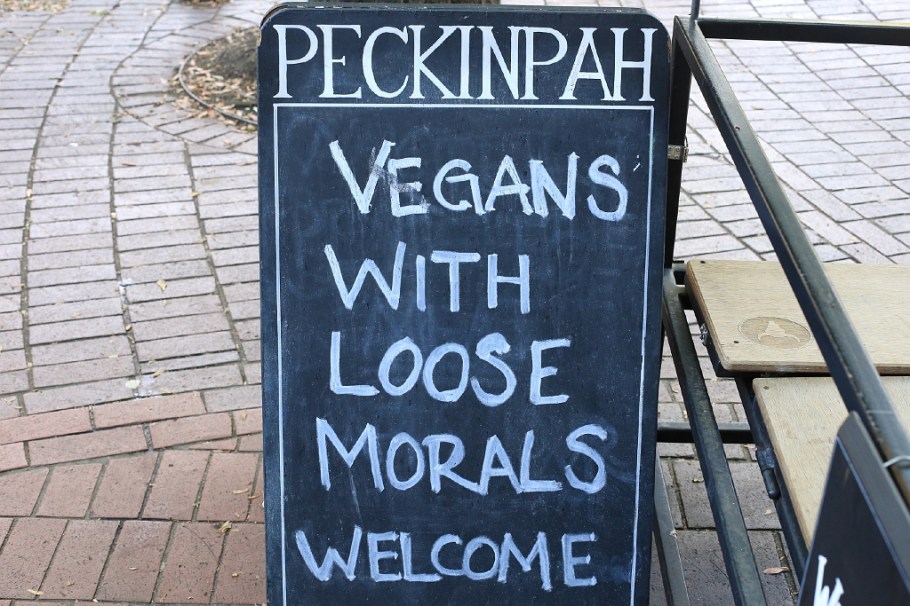 PECKINPAH
VEGANS
WITH
LOOSE
MORALS
WELCOME